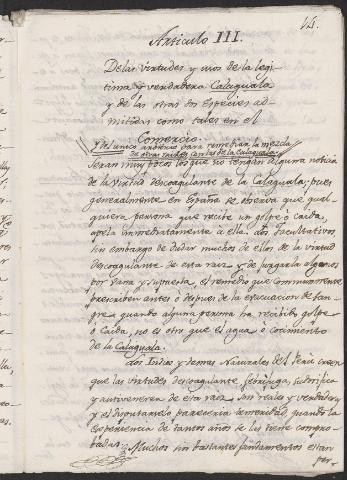 14.
Articulo III.
De las virtudes y usos de la legi-
tima y verdadera Calaguala
y de las otras dos especies ad-
mitidas como tales en el
Comercio.
y del unico arbitrio para remediar la mezcla
de otras raices con las de la Calaguala.
Seran muy pocos los que no tengan alguna noticia
de la virtud descoagulante de la Calaguala; pues
generalmente en España se observa que qual-
quiera persona que recibe un golpe ó caida,
apela inmediatamente á ella. Los facultativos
sin embargo de dudar muchos de ellos de la virtud
descoagulante de esta raiz y de juzgarla algunos
por vana y supuesta, el remedio que comunmente
prescriben antes ó despues de la evacuacion de san-
gre quando alguna persona ha recibido golpe
ó caida, no es otro que el agua ó cocimiento
de la Calaguala.
Los Indios y demas Naturales del Perú creen
que las virtudes descoagulante, febrifuga, sudorifica
y antivenerea de esta raiz son reales y verdaderas
y el disputarselo pareceria temeridad, quando la
experiencia de tantos años se las tiene compro-
badas. Muchos sin bastantes fundamentos estan
per-